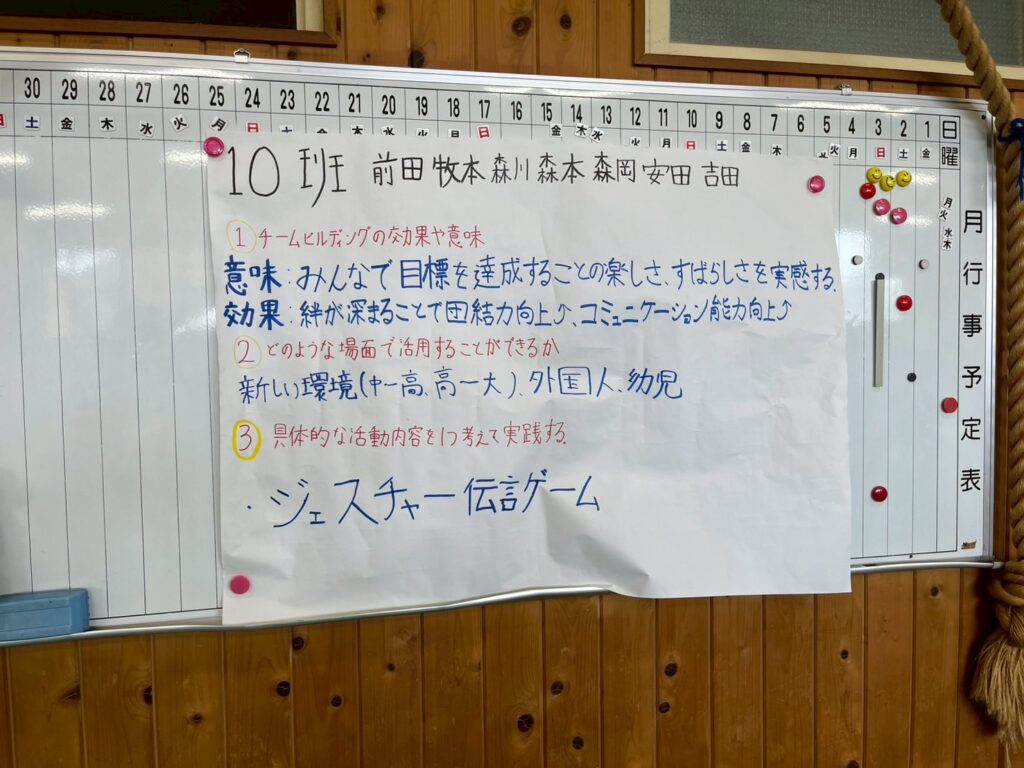 30 29 28 27 26 25 24 23 22 21 20 19 18 17 16 15 14 13 12 11 10 9 8 7 6 5 4 3 2 1 日
土 金 木 水 火 月 日 土 金 木 水 火 月 日 金 木 水 火 月 日 土 金 曜
月 火 水 木
月行事予定表
10班 前田 牧本 森川 森本 森岡 安田 吉田
① チームビルディングの効果や意味
意味:みんなで目標を達成することの楽しさ、すばらしさを実感する。
効果:絆が深まることで団結力向上↑、コミュニケーション能力向上↑
② どのような場面で活用することができるか
新しい環境(中一高、高一大)、外国人、幼児
③ 具体的な活動内容を1つ考えて実践する。
・ジェスチャー伝言ゲーム